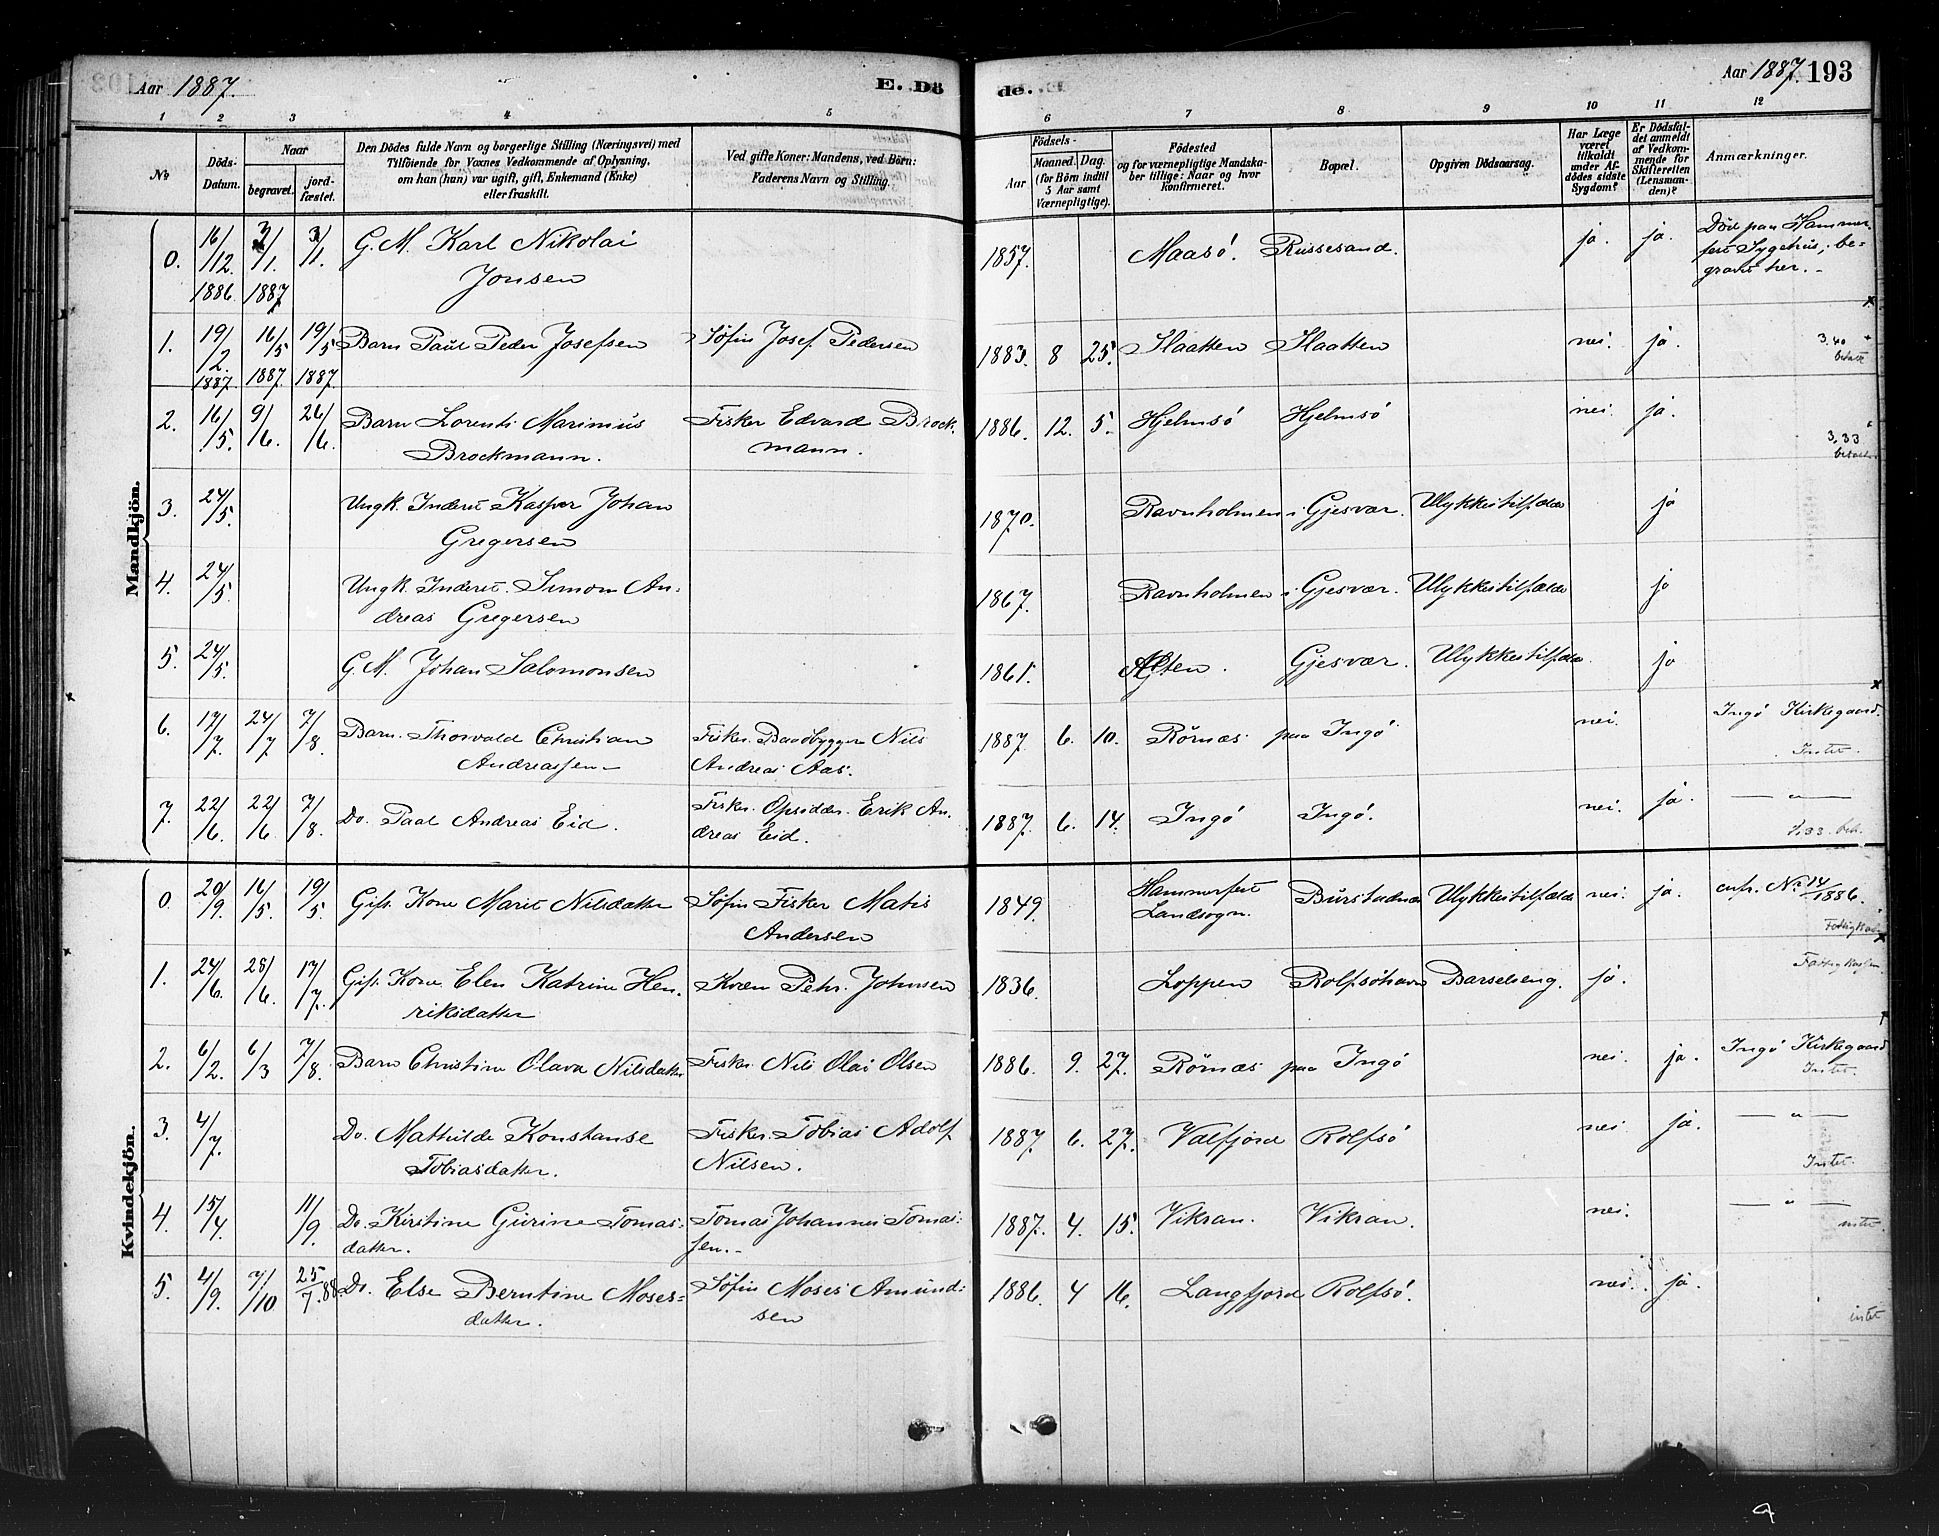 Aar 1887. E. Dö de. Aar 1887. 193
1 2 3 4 5 6 7 8 9 10 11 12
No
Döds-Datum.
Naar
begravet.
jord-fæstet.
Den Dödes fulde Navn og borgerlige Stilling (Næringsvei) med
Tilföiende for Voxnes Vedkommende af Oplysning,
om han (hun) var ugift, gift, Enkemand (Enke)
eller fraskilt.
Ved gifte Koner: Mandens, ved Börn:
Faderens Navn og Stilling.
Födsels-
Aar
Maaned. Dag.
(for Börn indtil
5 Aar samt
Værnepligtige).
Födested
og for værnepligtige Mandska-
ber tillige: Naar og hvor
konfirmeret.
Bopæl.
Opgiven Dödsaarsag.
Har Læge
været
tilkaldt
under Af-
dödes sidste
Sygdom?
Er Dödsfal-
det anmeldt
af Vedkom-
mende for
Skifteretten
(Lensman-
den)?
Anmærkninger.
Mandkjön.
0. 16/12 1886. 3/1 1887 3/1. G. M. Karl Nikolai 1857. Maasö. Russesand. ja. ja. Död paa Hammer-
Jonsen fest Sygehus, be-
gravet her. -
1. 19/2 1887. 16/5 1887. 19/5 1887. Barn Paul Peder Josefsen Söfin Josef Pedersen 1883. 8 25. Slaatten Slaatten nei. ja. 3.40
betalt
2. 16/5. 9/6. 26/6. Barn Lorents Marinius Fisker Edvard Brock- 1886. 12. 5. Hjelmsö Hjelmsö nei. ja. 3,33
Brockmann. mann. betalt
3. 24/5. Ungk. Inderst Kasper Johan 1870. Ravnholmen i Gjesvær. Ulykkestilfælde ja
Gregersen
4. 24/5. Ungk. Inderst. Simon An- 1867. Ravnholmen i Gjesvær. Ulykkestilfælde ja
dreas Gregersen
5. 24/5. G. M. Johan Salomonsen 1861. Alten. Gjesvær. Ulykkestilfælde ja
6. 17/7. 24/7 7/8. Barn. Thorvald Christian Fisker. Baadbygger Nils 1887. 6. 10. Rörnæs paa Ingö nei. Ingö Kirkegaard.
Andreassen - Andreas Aas. Intet.
7. 22/6. 22/6 7/8. Do. Paal Andreas Eid. Fisker. Opsidder. Erik An- 1887. 6. 14. Ingö Ingö. nei. ja. — " —
dreas Eid. 1,33. bet.
Kvindekjön.
0. 20/9. 16/5. 19/5. Gift. Kone Marit Nilsdatter Söfin Fisker Matis 1849. Hammerfest Burstadnes Ulykkestilfælde nei. ja. cnfr. No 14/1886.
Andersen Landsogn.
1. 24/6. 28/6. 17/7. Gift. Kone Elen Katrine Hen- Kvæn Petr. Johnsen 1836. Loppen Rolfsöhavn Barselseng. ja. Fattigkassen
riksdatter
2. 6/2. 6/3 7/8. Barn Christine Olava Nilsdatter Fisker Nils Olai Olsen 1886. 9. 27. Rörnæs paa Ingö nei. ja. Ingö Kirkegaard
Intet.
3. 4/7. Do. Mathilde Konstanse Fisker. Tobias Adolf 1887. 6. 27. Valfjord Rolfsö nei. ja. — " —
Tobiasdatter. Nilsen. Intet.
4. 15/4. 11/9. Do. Kirstine Gurine Tomas- Tomas Johannes Tomas- 1887. 4. 15. Vikran. Vikran. nei. — " —
datter. sen. - intet.
5. 4/9. 7/10 25/7.88 Do. Else Berntine Moses- Söfin Moses Amund- 1886. 4 16. Langfjord Rolfsö. nei. ja.
datter. sen intet